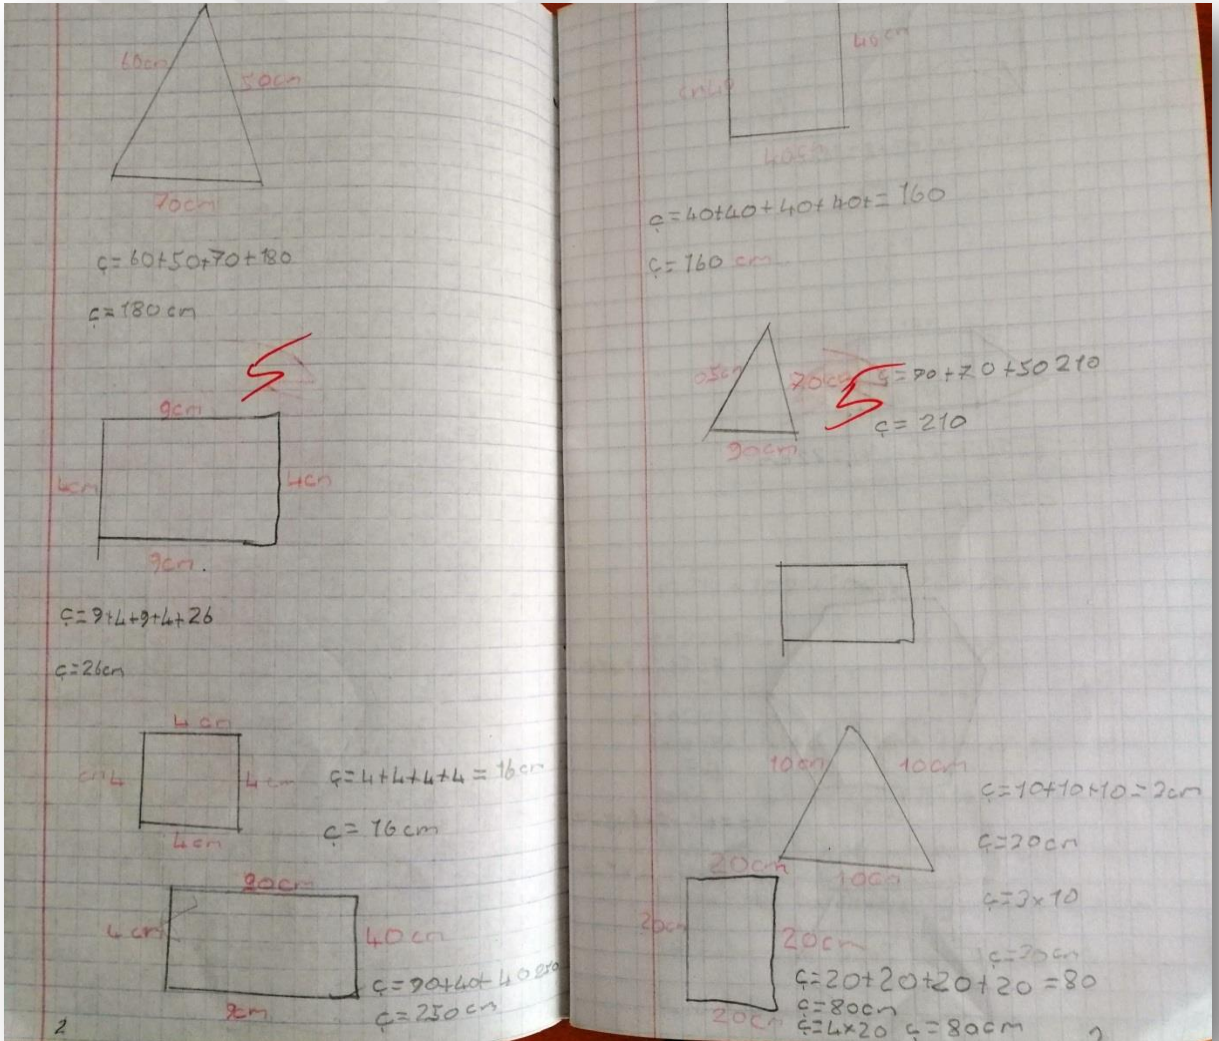 60cm
50cm
70cm
ç=60+50+70+180
ç=180 cm
9cm
4cm
4cm
9cm.
ç=9+4+9+4+26
ç=26cm
4 cm
cm4
4 cm
4cm
ç=4+4+4+4=16cm
ç=16cm
90cm
4cm
40cm
9cm
ç=90+40+40
ç=250cm
2
40cm
40cm
ç=40+40+40+40+=160
ç=160 cm
70cm
90cm
ç=90+70+50 210
ç=210
10cm
10cm
10cm
ç=10+10+10=2cm
ç=20cm
ç=3×10
ç=30cm
20cm
20cm
20cm
20cm
ç=20+20+20+20=80
ç=80cm
ç=4×20 ç=80cm